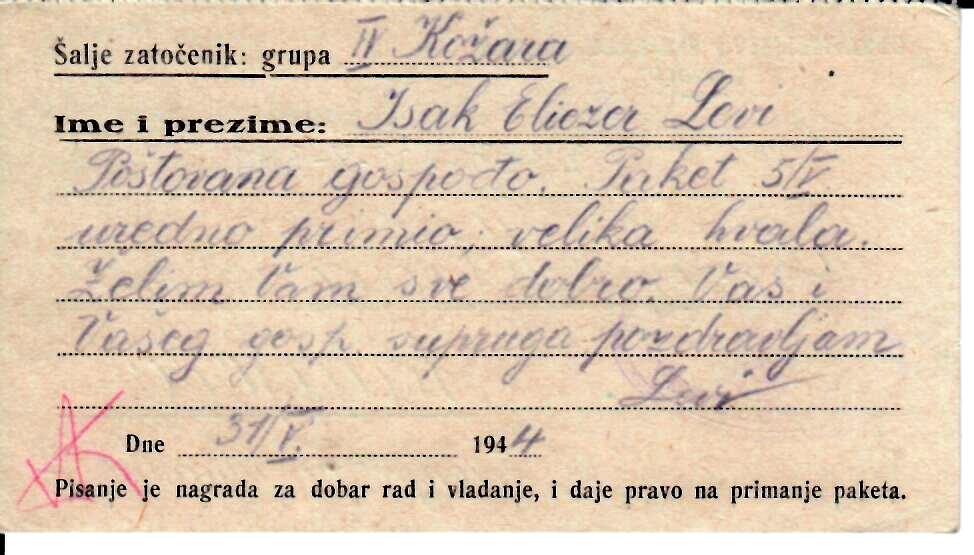 Šalje zatočenik: grupa IV Kožara
Ime i prezime: Isak Eliezer Levi
Poštovana gospođo. Paket 5/V.
uredno primio; velika hvala.
Želim Vam sve dobro. Vas i
Vašeg gosp. supruga pozdravljam
Levi
Dne 31/V. 1944
Pisanje je nagrada za dobar rad i vladanje, i daje pravo na primanje paketa.